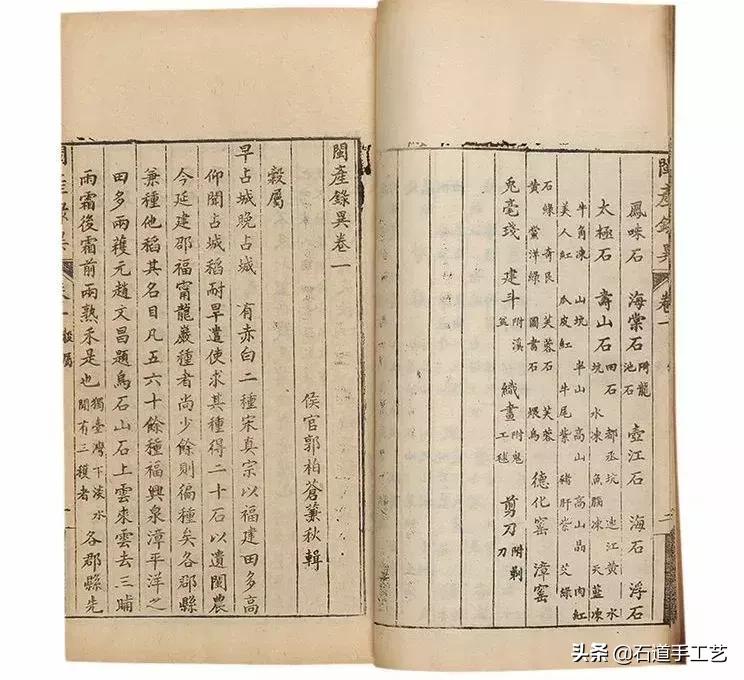 閩產錄異 卷一 二
鳳咮石 海棠石 附龍池石 壺江石 海石 浮石
太極石 壽山石 田石 都丞坑 連江黃 水
坑 水凍 魚腦凍 天藍凍
牛角凍 山坑 半山 高山 高山晶 肉紅
美人紅 瓜皮紅 牛尾紫 豬肝紫 艾綠
石綠 奇艮 芙蓉石 芙蓉
黃石 黨洋綠 圖書石 煨烏 德化窰 漳窰
兔毫琖 建斗 附溪盆 織畫 附鬼工毬 剪刀 附剃刀
閩產錄異卷一
侯官郭柏蒼蒹秋輯
穀屬
早占城晚占城 有赤白二種宋真宗以福建田多高
仰聞占城稻耐旱遣使求其種得二十石以遺閩農
今延建邵福甯龍巖種者尚少餘則徧種矣各郡縣
兼種他稻其名目凡五六十餘種福興泉漳平洋之
田多兩穫元趙文昌題烏石山石上雲來雲去三晡
雨霜後霜前兩熟禾是也 獨臺灣下淡水間有三穫者 各郡縣先
閩產錄異 卷一 穀屬 一
头条 @石道手工艺